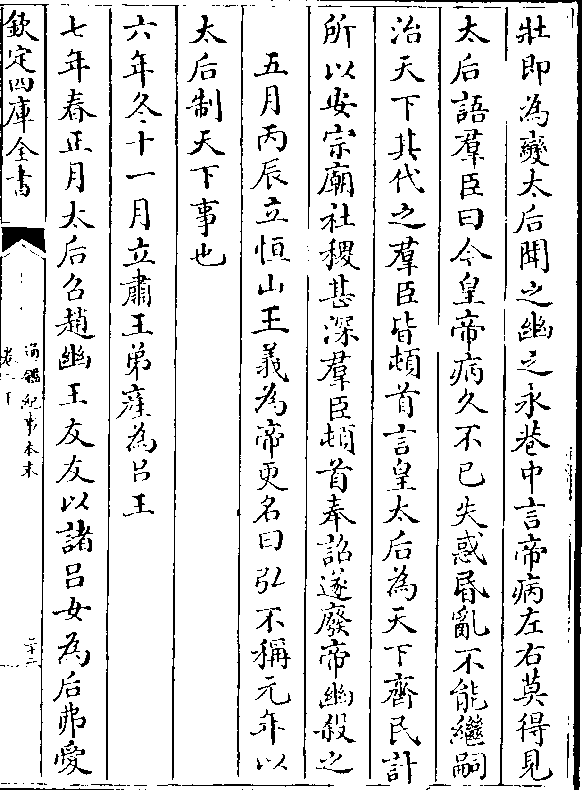 壯即為變太后聞之幽之永巷中言帝病左右莫得見
太后語羣臣曰今皇帝病久不已失惑昬亂不能繼嗣
治天下其代之羣臣皆頓首言皇太后為天下齊民計
所以安宗廟社稷甚深羣臣頓首奉詔遂廢帝幽殺之
五月丙辰立恒山王義為帝更名曰弘不稱元年以
太后制天下事也
六年冬十一月立肅王弟產為吕王
七年春正月太后召趙幽王友友以諸吕女為后弗愛
欽定四庫全書
通鑑紀事本末
卷二下
二十二